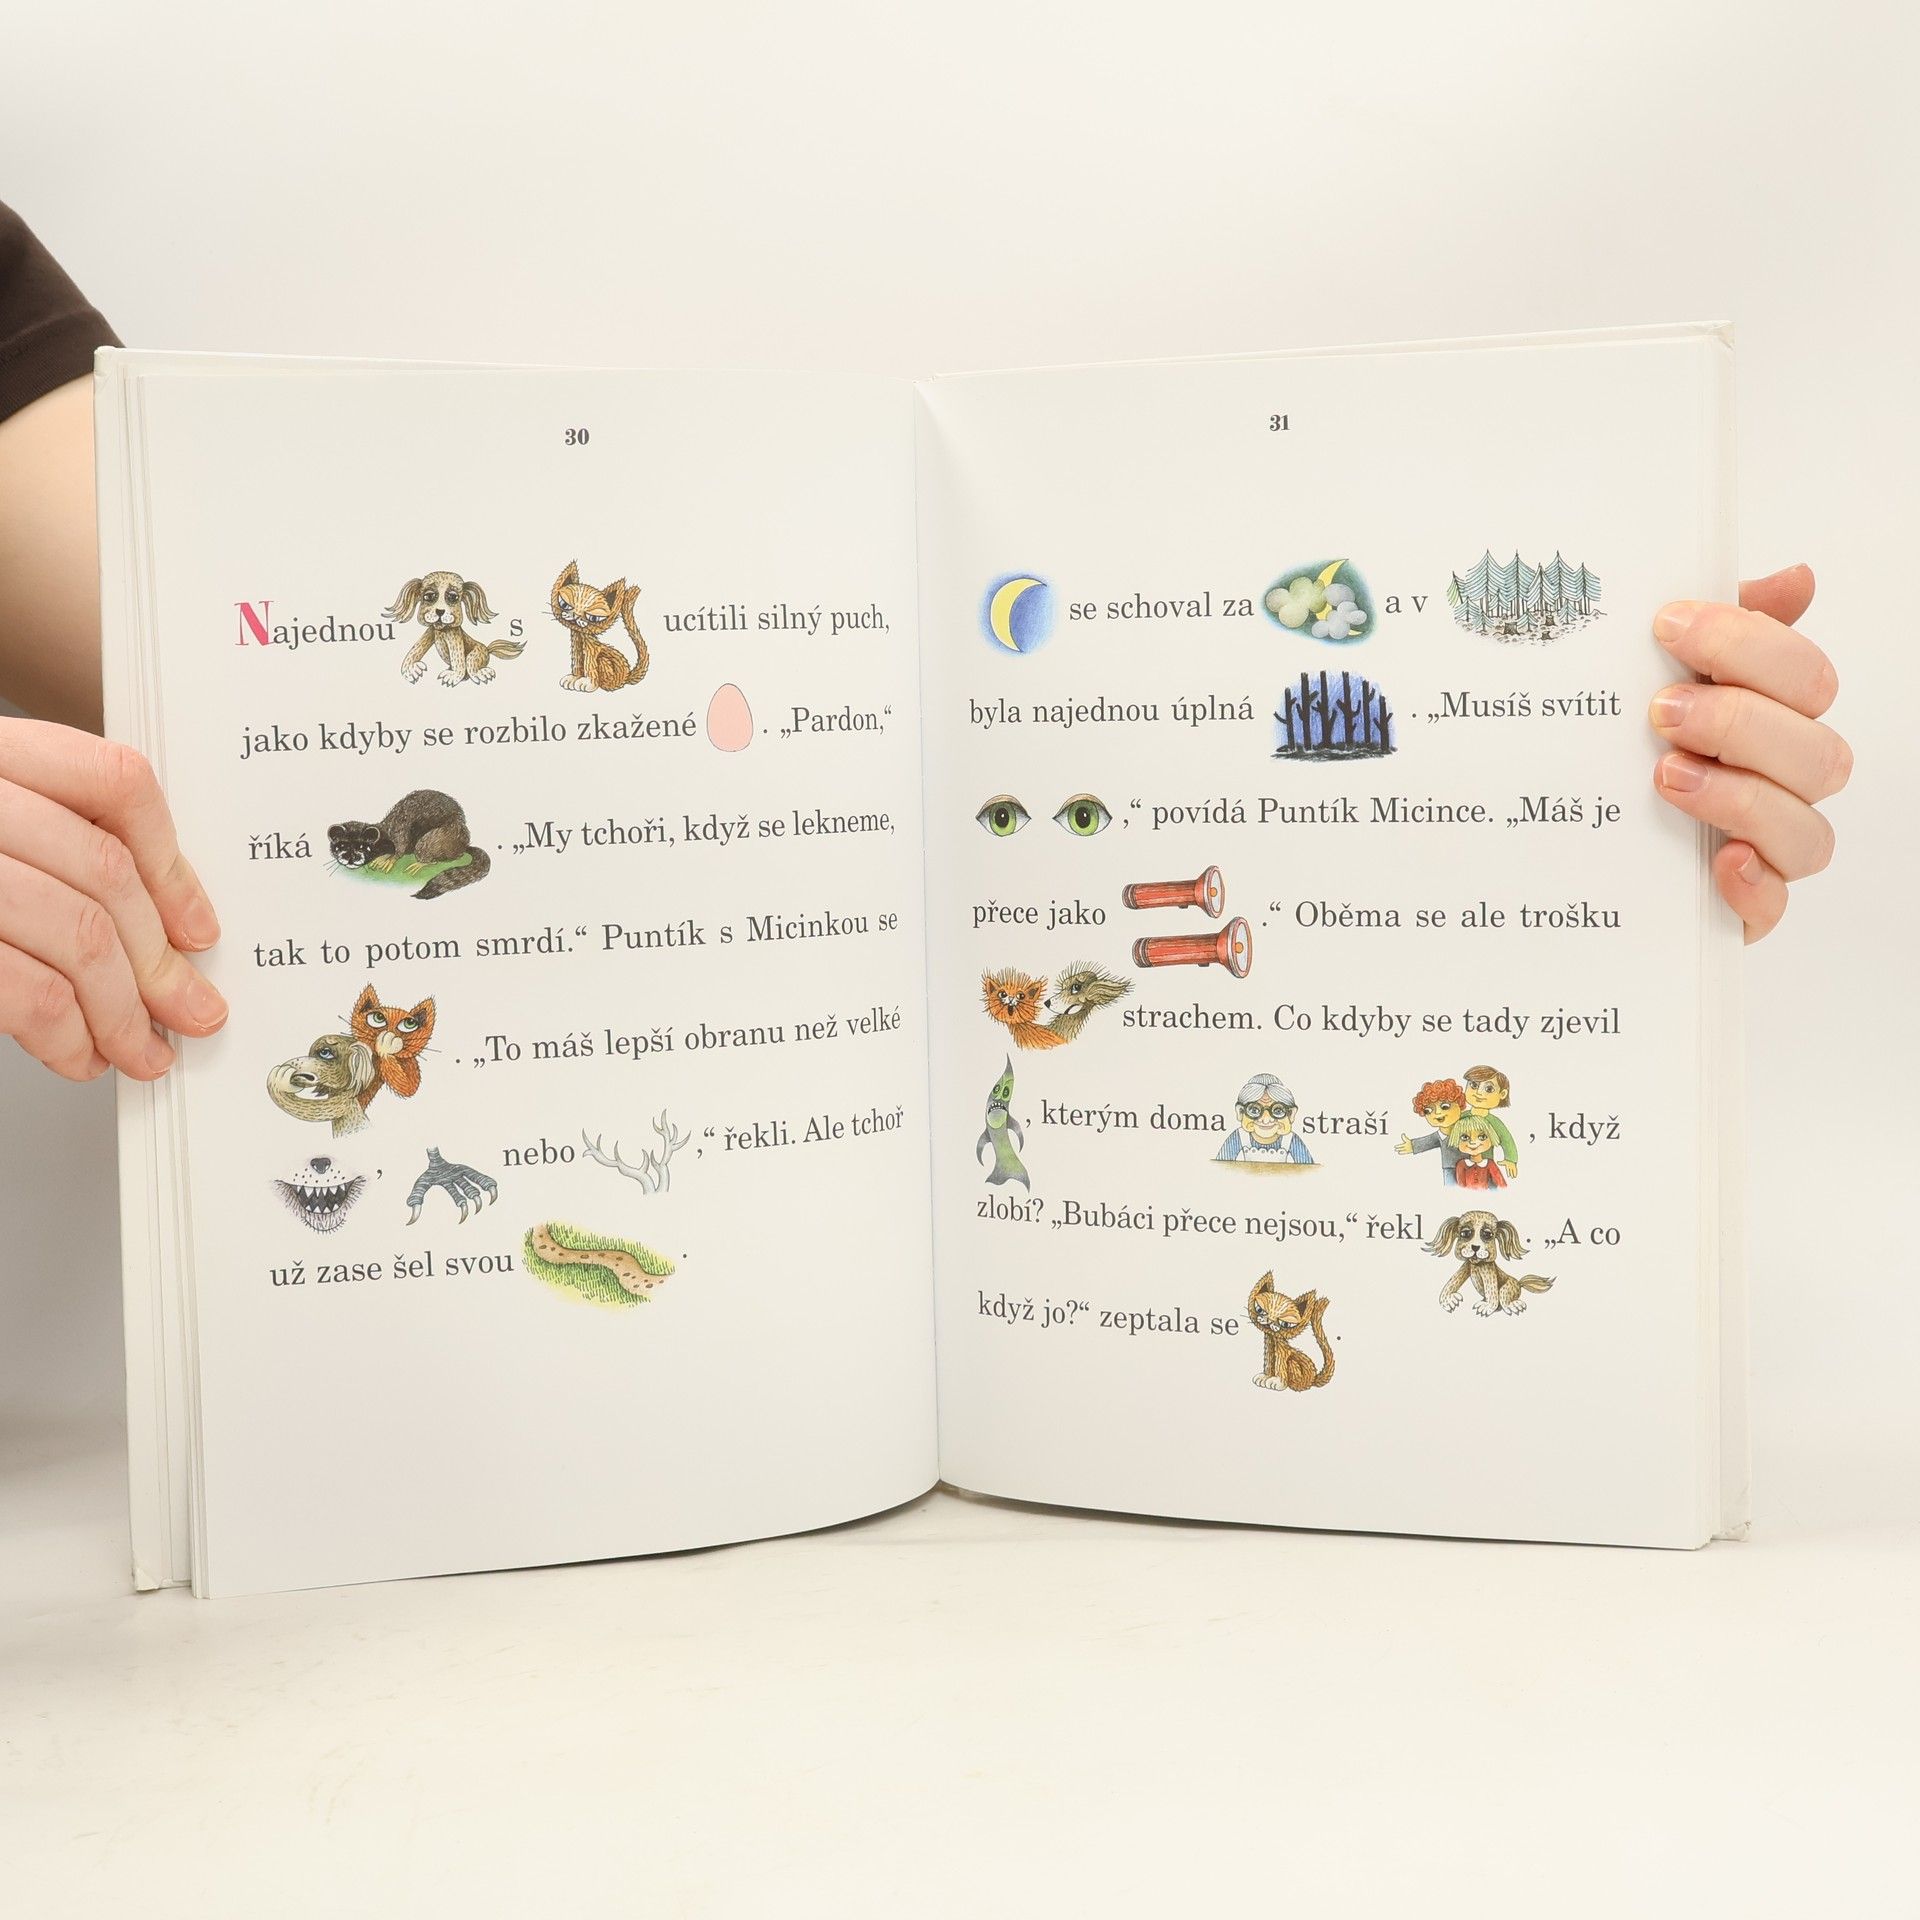 30
Najednou s ucítili silný puch,
jako kdyby se rozbilo zkažené . „Pardon,“
říká . „My tchoři, když se lekneme,
tak to potom smrdí.“ Puntík s Micinkou se
. „To máš lepší obranu než velké
, nebo ,“ řekli. Ale tchoř
už zase šel svou .
31
se schoval za a v
byla najednou úplná . „Musíš svítit
,“ povídá Puntík Micince. „Máš je
přece jako .“ Oběma se ale trošku
strachem. Co kdyby se tady zjevil
, kterým doma straší , když
zlobí? „Bubáci přece nejsou,“ řekl . „A co
když jo?“ zeptala se .